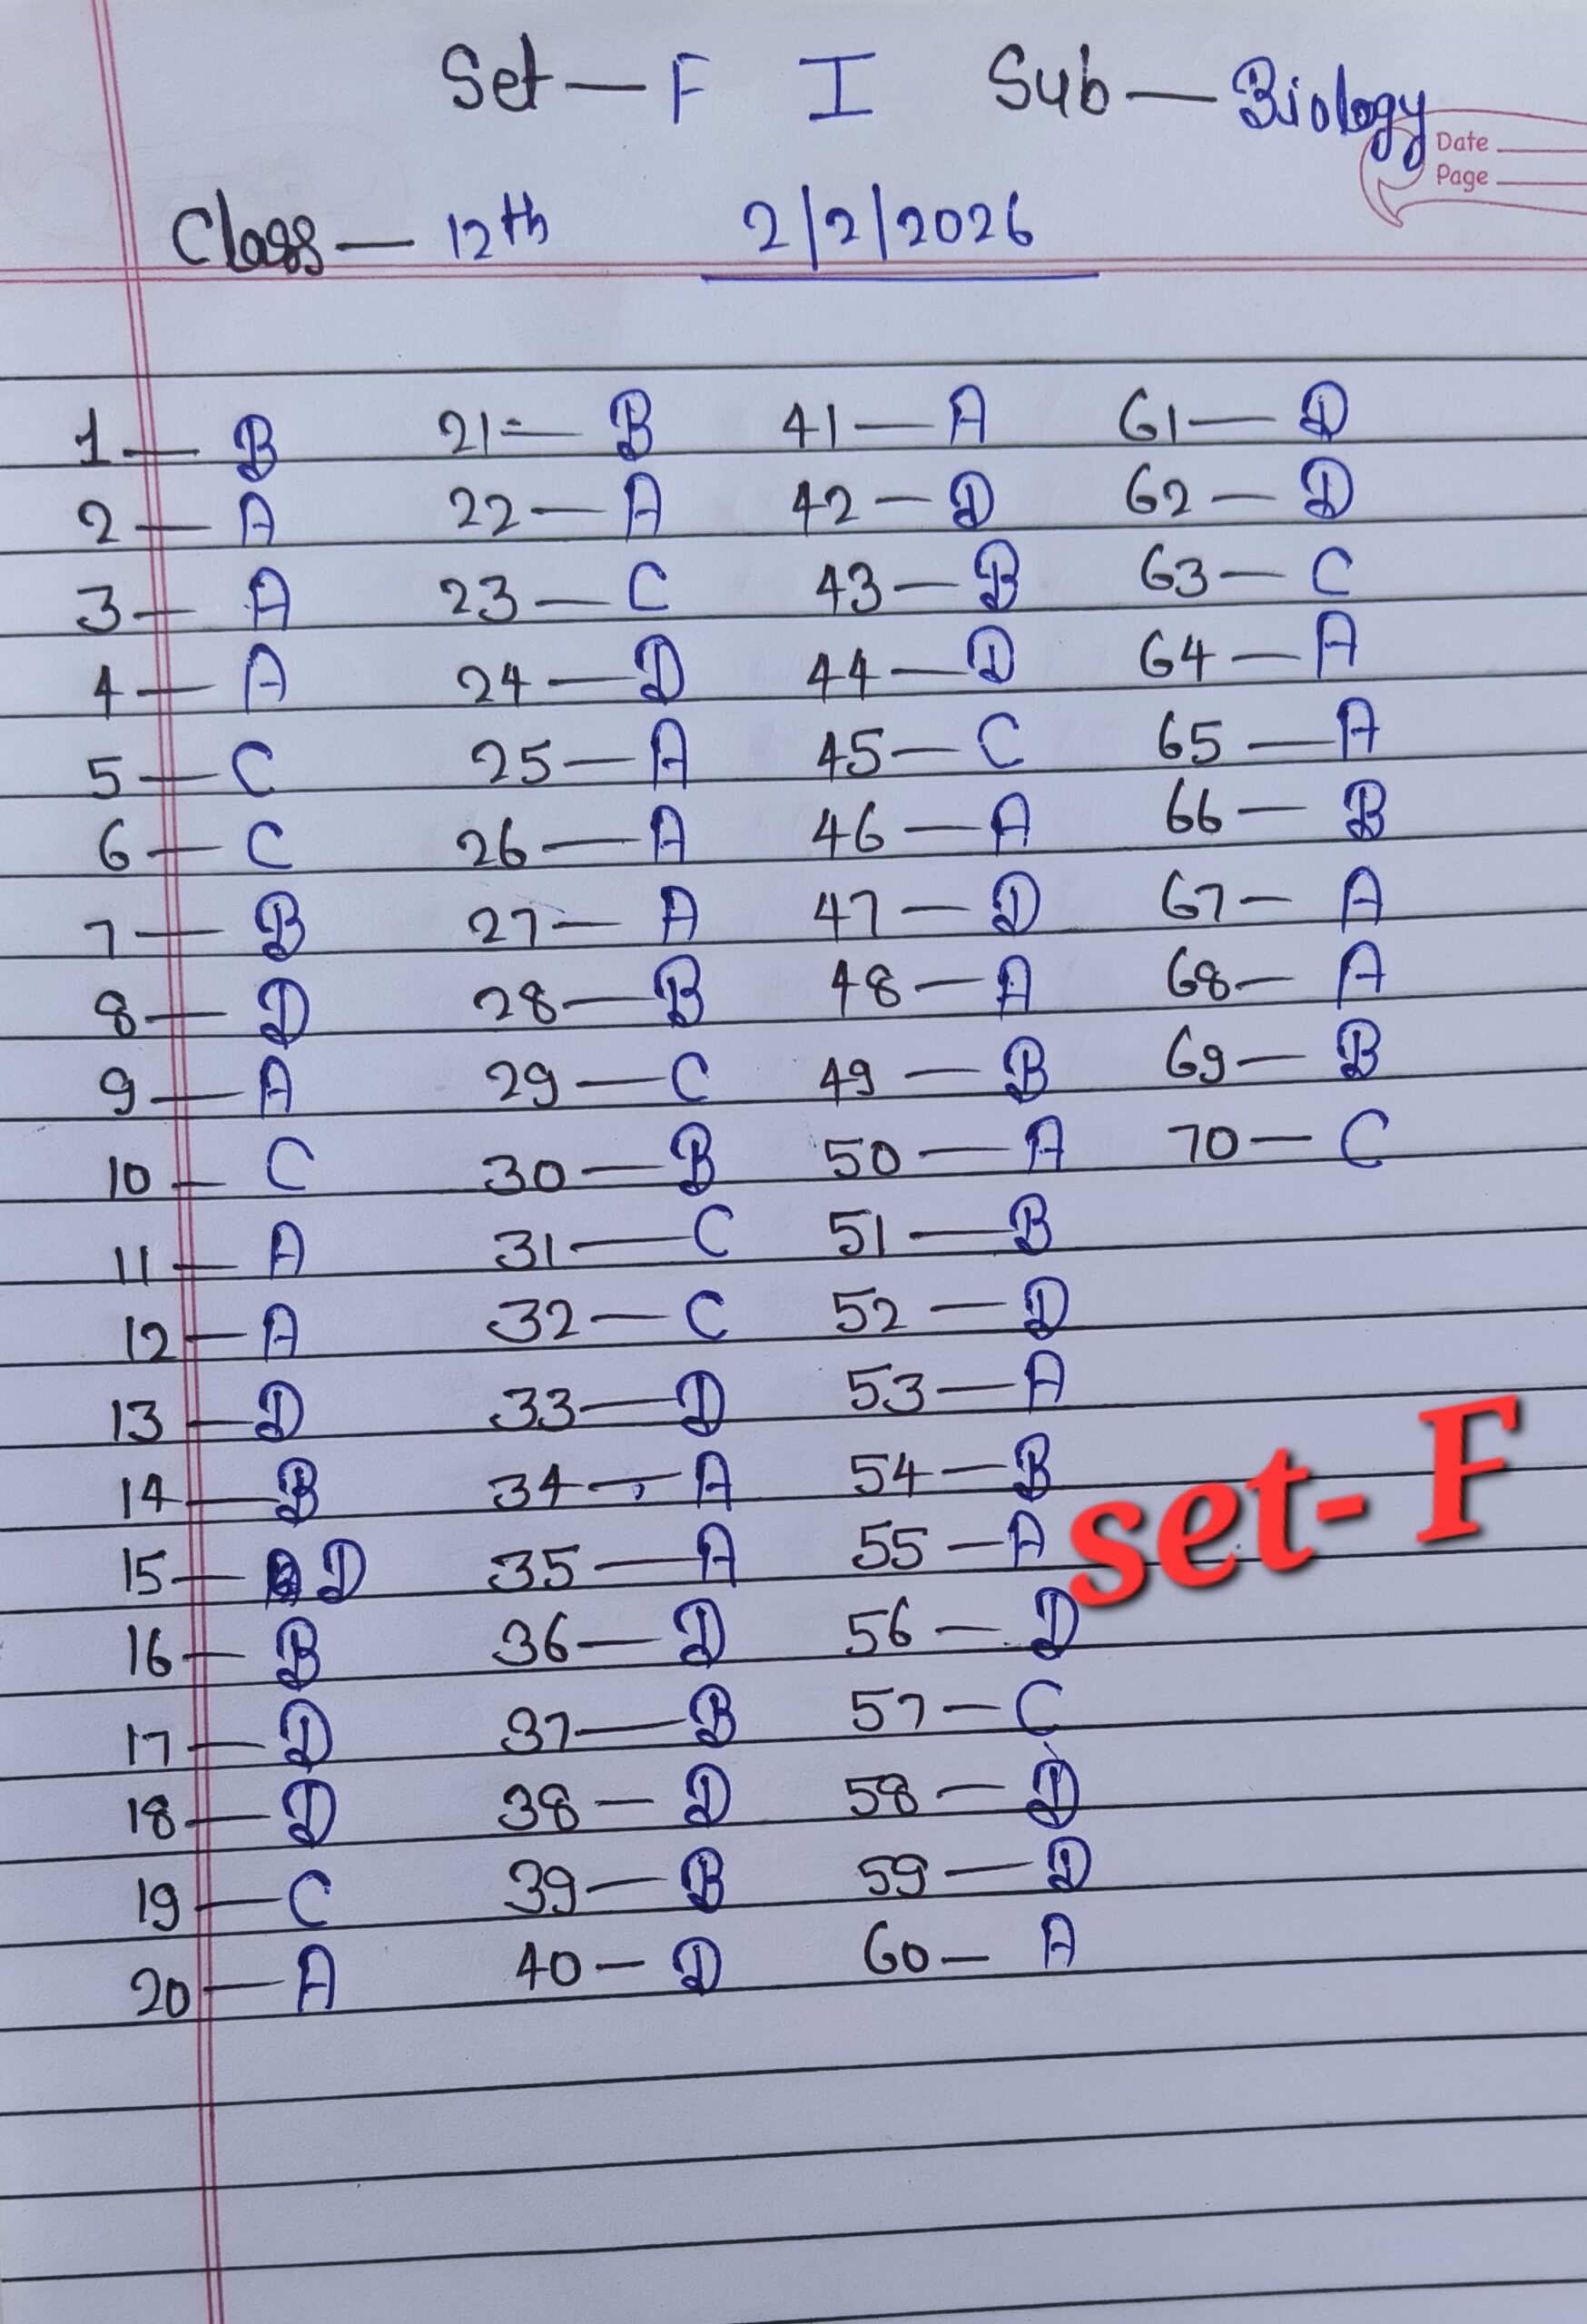 Set — F I Sub — Biology
Date
Page
Class — 12th 2/2/2026
1 — B 21 — B 41 — A 61 — D
2 — A 22 — A 42 — D 62 — D
3 — A 23 — C 43 — B 63 — C
4 — A 24 — D 44 — D 64 — A
5 — C 25 — A 45 — C 65 — A
6 — C 26 — A 46 — A 66 — B
7 — B 27 — A 47 — D 67 — A
8 — D 28 — B 48 — A 68 — A
9 — A 29 — C 49 — B 69 — B
10 — C 30 — B 50 — A 70 — C
11 — A 31 — C 51 — B
12 — A 32 — C 52 — D
13 — D 33 — D 53 — A
14 — B 34 — A 54 — B
15 — D 35 — A 55 — A
set- F
16 — B 36 — D 56 — D
17 — D 37 — B 57 — C
18 — D 38 — D 58 — D
19 — C 39 — B 59 — D
20 — A 40 — D 60 — A